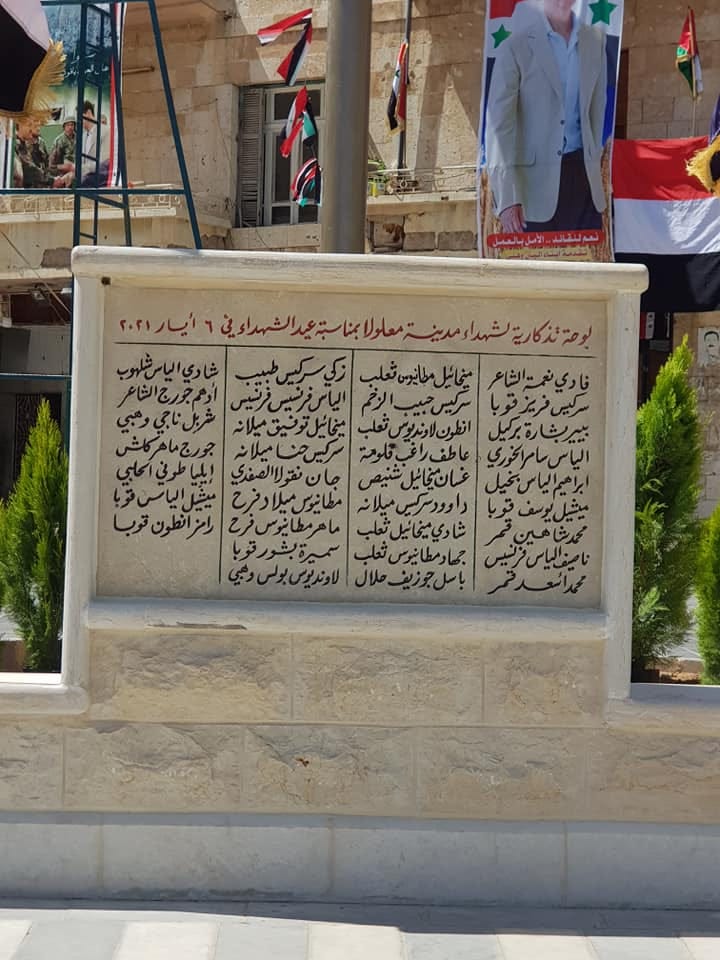 نعم للقائد .. الأمل بالعمل
لوحة تذكارية لشهداء مدينة معلولا بمناسبة عيد الشهداء في ٦ أيار ٢٠٢١
فادي نعمة الشاعر
سركيس فريز قوبا
بيير بشارة بركيل
الياس سامر الخوري
ابراهيم الياس بخيل
ميشيل يوسف قوبا
محمد شاهين قمر
ناصيف الياس فرنسيس
محمد أسعد قمر
ميخائيل مطانيوس ثعلب
سركيس حبيب الزخم
انطون لاونديوس ثعلب
عاطف راغب قلومة
غسان ميخائيل شنيص
داوود سركيس ميلانه
شادي ميخائيل ثعلب
جهاد مطانيوس ثعلب
باسل جوزيف حلال
زكي سركيس طبيب
الياس فرنسيس فرنسيس
ميخائيل توفيق ميلانه
سركيس حنا ميلانه
جان نقولا الصفدي
مطانيوس ميلاد فرح
ماهر مطانيوس فرح
سميرة بشور قوبا
لاونديوس بولس وهبي
شادي الياس شلهوب
أدهم جورج الشاعر
شربل ناجي وهبي
جورج ماهر كلش
إيليا طوني الحلبي
ميشيل الياس قوبا
رامز انطون قوبا